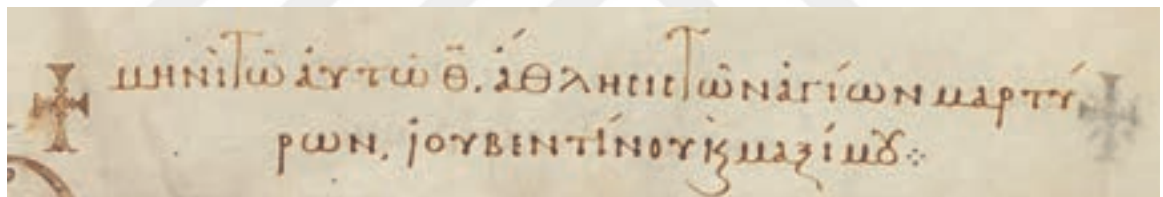 μηνὶ τῶ ἀυτῶ θ̅. ἄθλησις τῶν ἁγίων μαρτύ
ρων, ϊουβεντίνου κ μαξίμου ⁘